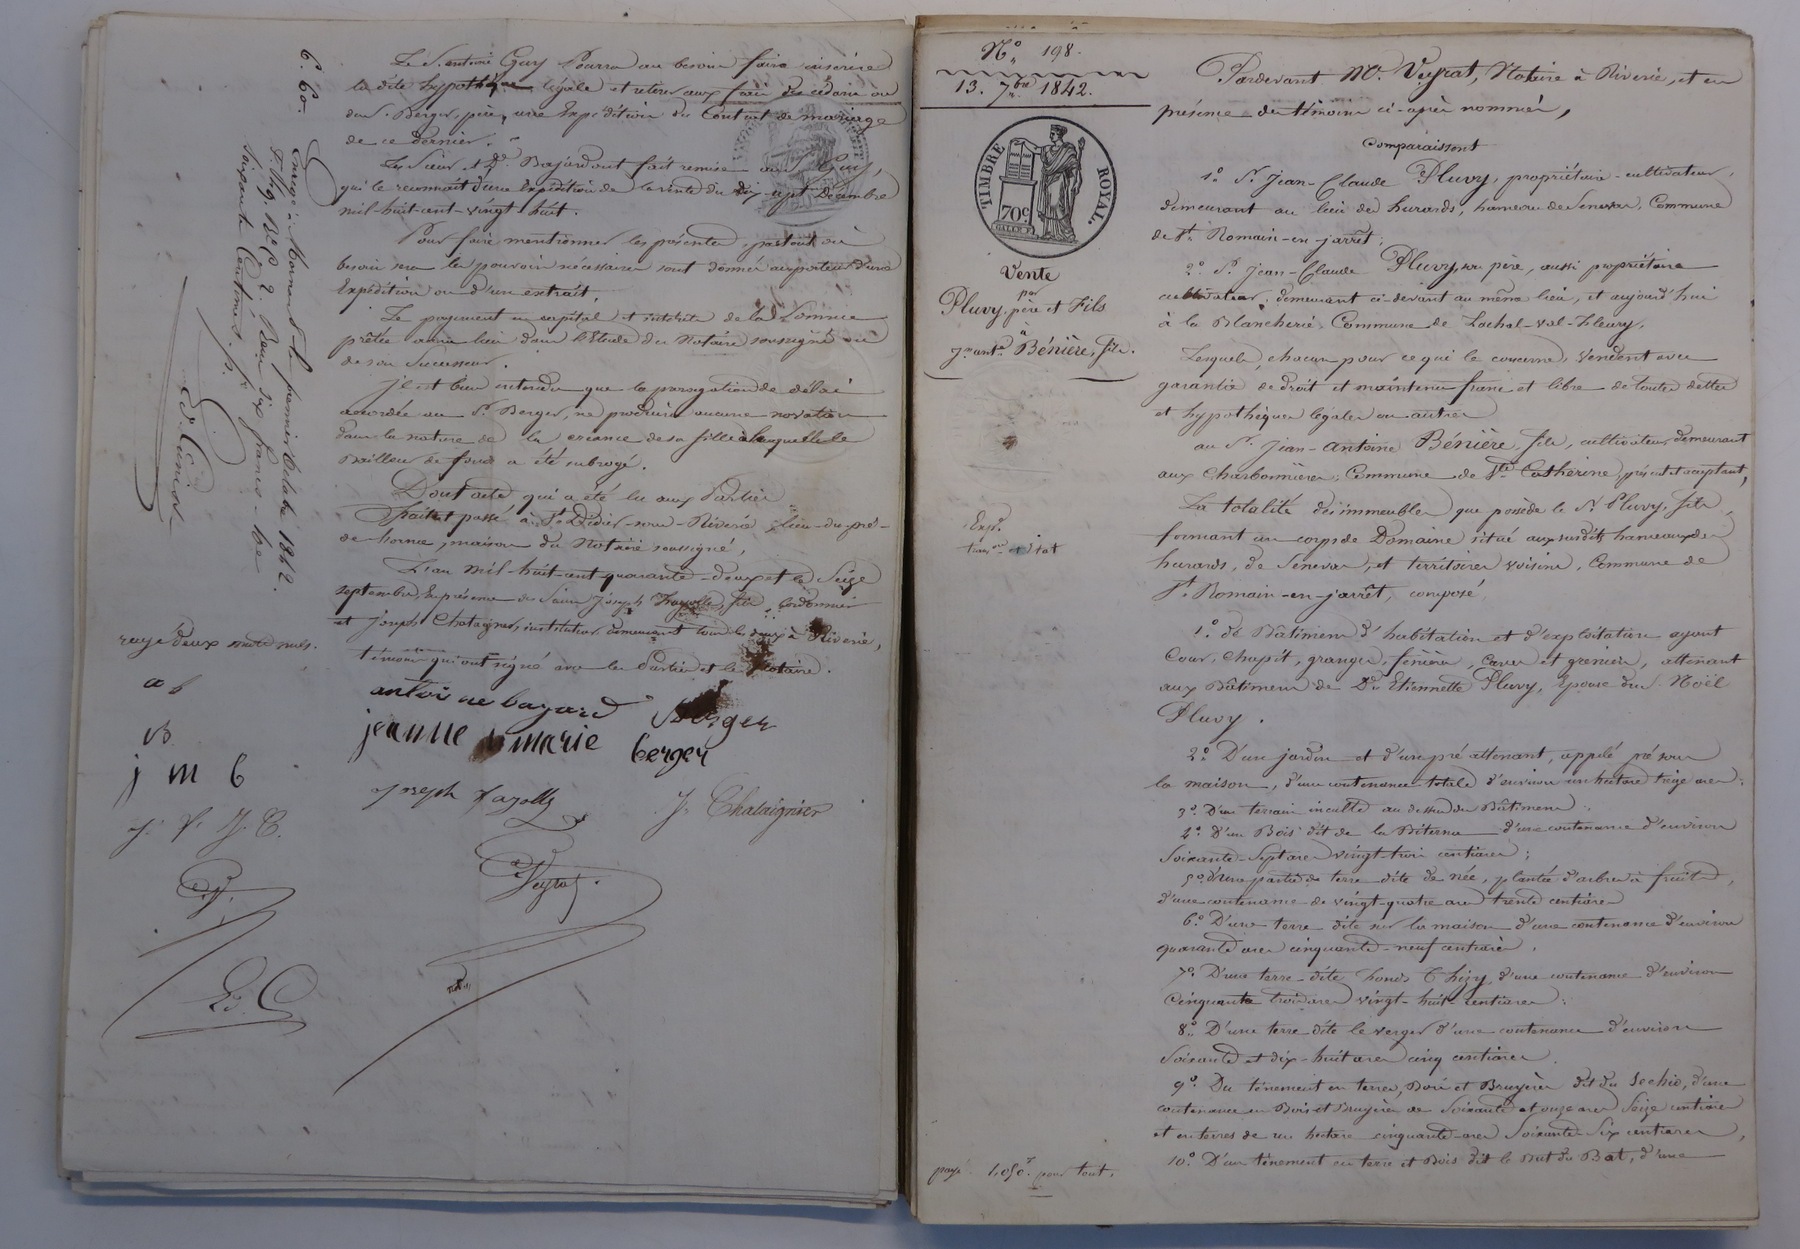 Le S. antoine Guy Pourra au besoin faire inscrire
la dite hypothèque légale et retirer aux frais des cédans ou
du S. Berger, père, une Expédition du Contrat de mariage
de ce dernier.
Les Sieur et De. Bajard ont fait remise au S. Guy,
qui le reconnaît d'une Expédition de la vente du dix-sept Décembre
mil-huit-cent-vingt huit.
Pour faire mentionner les présentes, partout où
besoin sera les pouvoirs nécessaires sont donnés au porteur d'une
Expédition ou d'un extrait.
Le payement en capital et intérêts de la Somme
prêtée aura lieu dans l'Etude du Notaire soussigné ou
de son Successeur.
Il est bien entendu que la prorogation de délai
accordée au S. Berger, ne produira aucune novation
dans la nature de la créance de sa fille à laquelle le
Bailleur de fonds a été subrogé.
Dont acte qui a été lu aux Parties
Fait et passé à St. Didier-sous-Riverie, lieu-du-pré-
de-horme, maison du Notaire soussigné,
L'an mil-huit-cent-quarante-deux et le Seize
septembre, En présence des Sieurs Joseph Fayolle, fils, Cordonnier
et Joseph Chatagner, instituteur demeurant tous les deux à Riverie,
témoins qui ont signé avec les Parties et le Notaire.
antoine bayard Berger
jeanne marie berger
Joseph fayolle J. Chataignier
Veyrat
6. 60
Enregé. à Mornant le premier octobre 1842.
Reçu six francs
soixante Centimes
rayé deux mots nuls.
a b
B
j m b
J. f. J. C.
Nº 198.
13. 7bre 1842.
TIMBRE ROYAL.
70c
Vente
par
Pluvy, père et Fils
à
Jn. ante. Bénière, fils.
Expn.
et Etat
payé 1,050f pour tout.
Pardevant Me. Veyrat, Notaire à Riverie, et en
présence des témoins ci-après nommés,
Comparaissent
1º S. Jean-Claude Pluvy, propriétaire-cultivateur,
demeurant au lieu des hurards, hameau de Senevas, Commune
de St. Romain-en-jarrêt;
2º S. Jean-Claude Pluvy, son père, aussi propriétaire
cultivateur, demeurant ci-devant au même lieu, et aujourd'hui
à la Blancherie, Commune de Lachal-Val-Fleury,
Lesquels, chacun pour ce qui le concerne, Vendent avec
garantie de droit et maintenu franc et libre de toutes dettes
et hypothèques légales ou autres
au S. Jean-Antoine Bénière, fils, cultivateur, demeurant
aux Charbonnières, Commune de Ste. Catherine, présent et acceptant,
La totalité des immeubles que possède le S. Pluvy, fils,
formant un corps de Domaine situé aux susdits hameaux des
hurards, de Senevas, et territoires voisins, Commune de
St. Romain-en-jarrêt, composé,
1º de Bâtimens d'habitation et d'exploitation ayant
Cour, Chapit, granges, fenières, Caves et greniers, attenant
aux Bâtimens de De. Etiennette Pluvy, Epouse du S. Noël
Pluvy.
2º D'un jardin et d'un pré attenant, appelé pré sous
la maison, d'une contenance totale d'environ un hectare treize ares;
3º D'un terrain inculte au dessus des Bâtimens;
4º D'un Bois dit de la d'une contenance d'environ
Soixante-Sept ares vingt-trois centiares;
5º d'une partie de terre dite de née, plantée d'arbres à fruits,
d'une contenance de vingt-quatre ares trente centiares
6º D'une terre dite sur la maison d'une contenance d'environ
quarante ares cinquante-neuf centiares,
7º D'une terre dite Fonds Thizy, d'une contenance d'environ
Cinquante trois ares vingt-huit centiares;
8º D'une terre dite le verger d'une contenance d'environ
Soixante et dix-huit ares cinq centiares
9º Du ténement en terres, Bois et Bruyères dit du Sechio, d'une
contenance en Bois et Bruyères de Soixante et onze ares Seize centiares
et en terres de un hectare cinquante ares Soixante Six centiares,
10º D'un ténement en terre et Bois dit le But du Bat, d'une